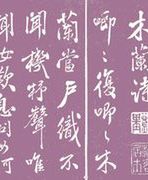 木蘭詩
唧唧復唧唧木
蘭當戶織不
聞機杼聲唯
聞女歎息問女何